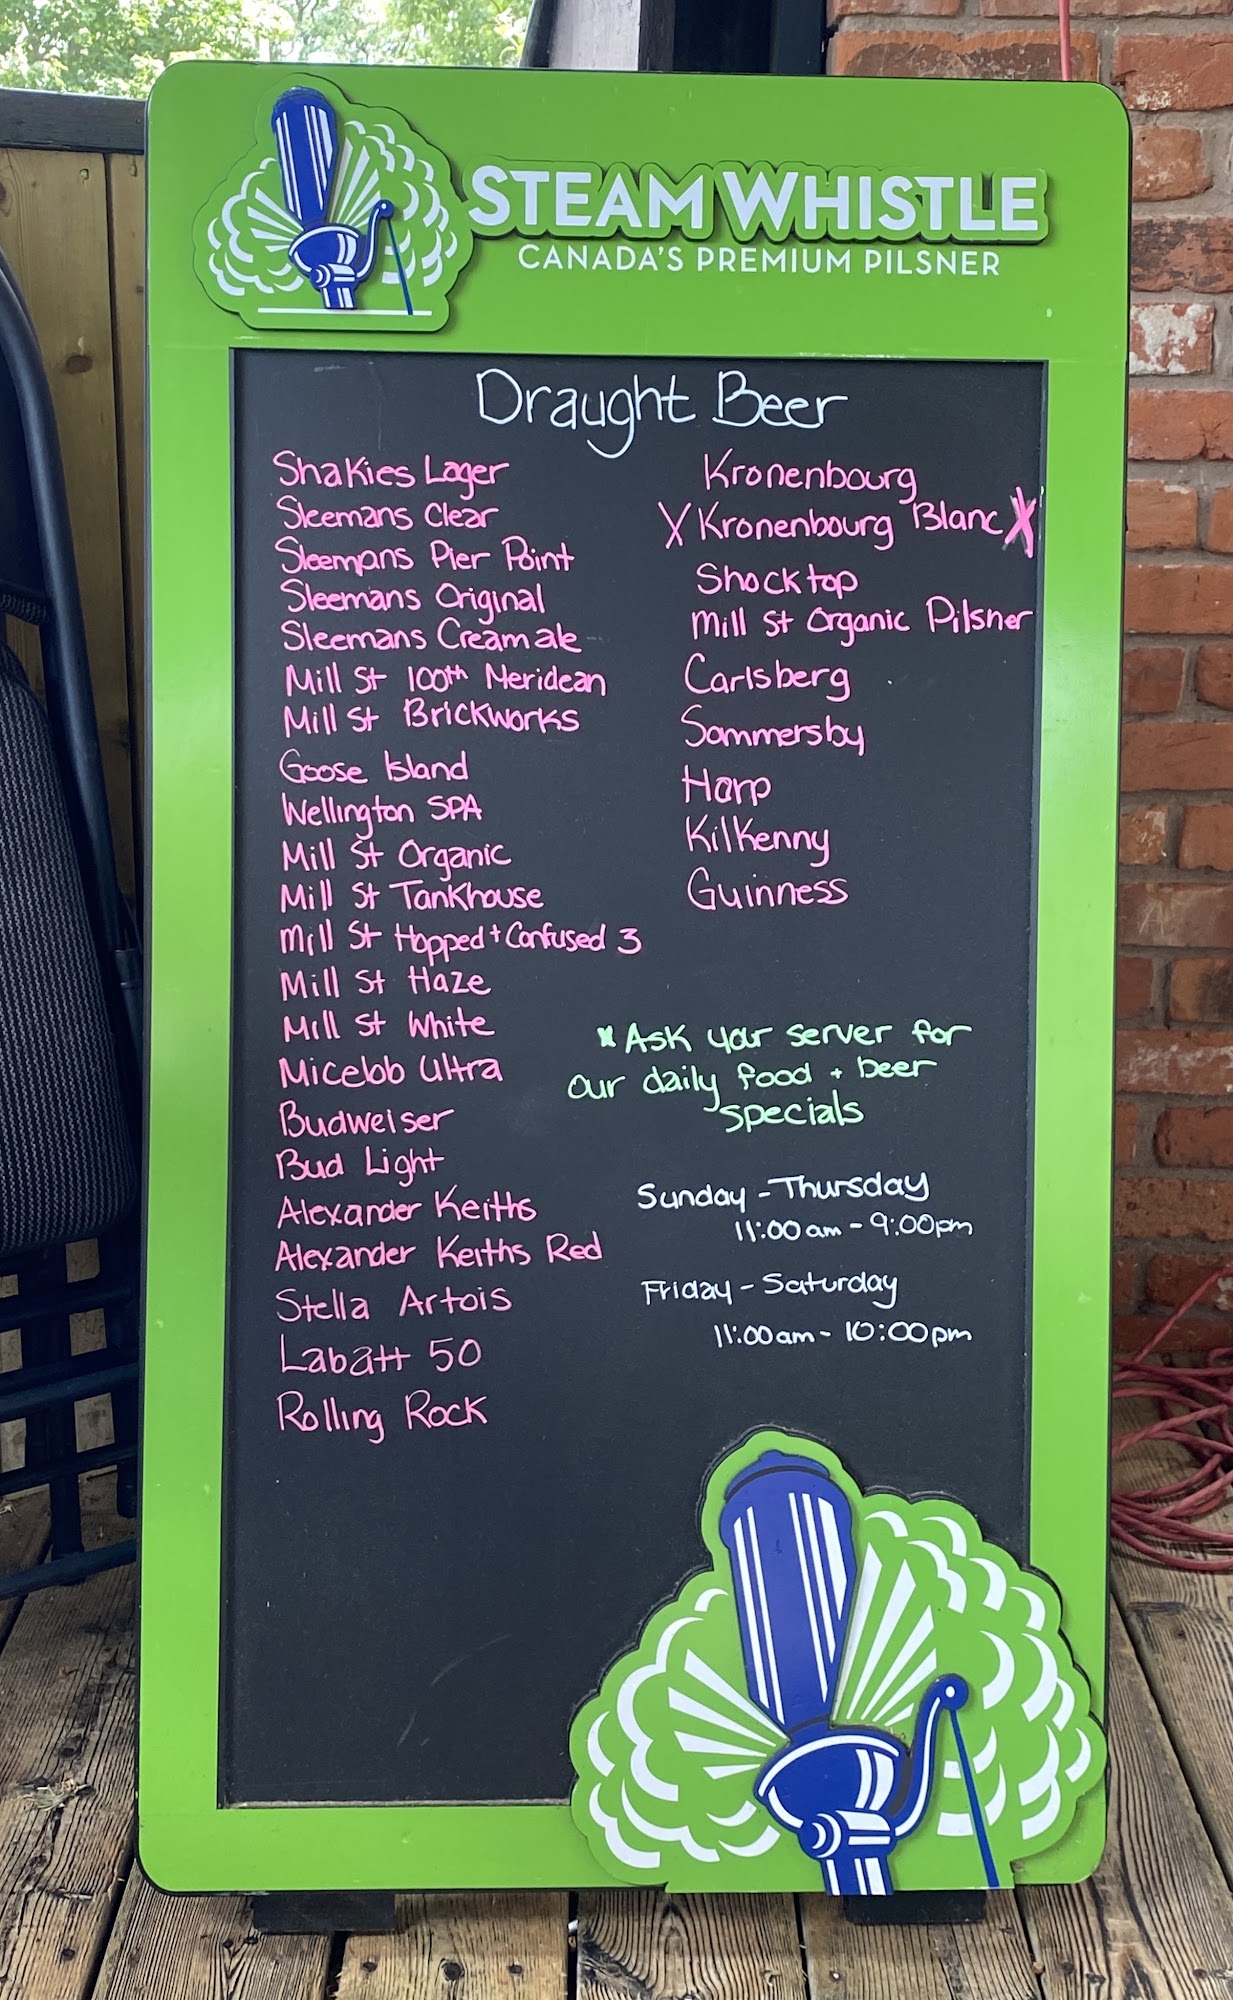 STEAM WHISTLE
CANADA'S PREMIUM PILSNER
Draught Beer
Shakies Lager
Sleemans Clear
Sleemans Pier Point
Sleemans Original
Sleemans Creamale
Mill St 100th Meridean
Mill St Brickworks
Goose Island
Wellington SPA
Mill St Organic
Mill St Tankhouse
Mill St Hopped + Confused 3
Mill St Haze
Mill St White
Micelob Ultra
Budweiser
Bud Light
Alexander Keiths
Alexander Keiths Red
Stella Artois
Labatt 50
Rolling Rock
Kronenbourg
X Kronenbourg Blanc X
Shocktop
Mill St Organic Pilsner
Carlsberg
Sommersby
Harp
Kilkenny
Guinness
* Ask your server for
our daily food + beer
specials
Sunday - Thursday
11:00 am - 9:00pm
Friday - Saturday
11:00am - 10:00pm